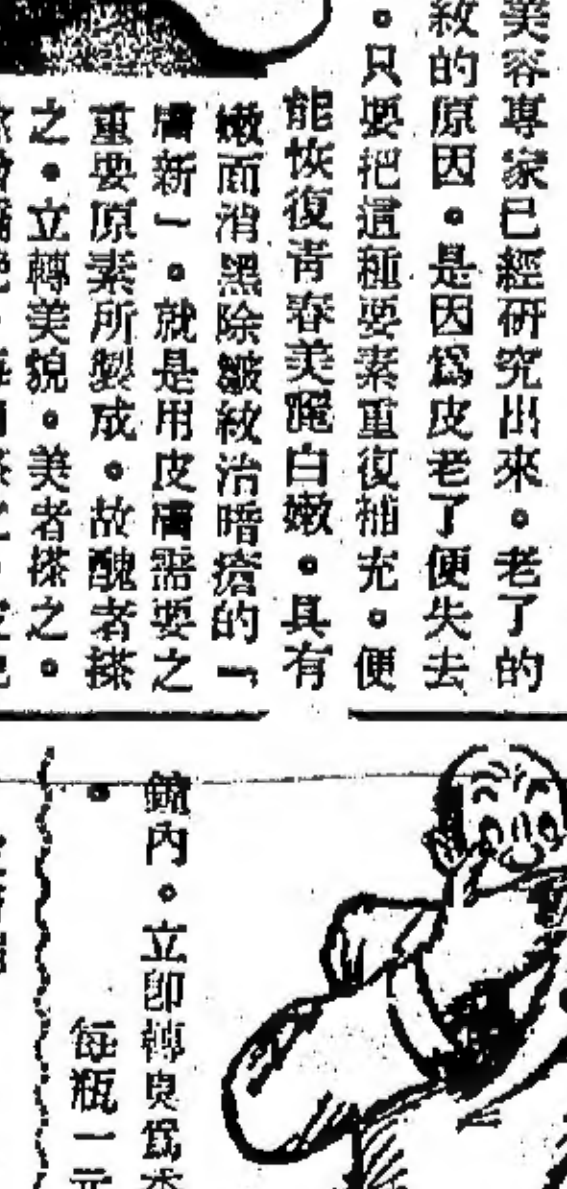 美容專家已經研究出來。老了的
紋的原因。是因爲皮老了便失去
。只要把這種要素重復補充。便
能恢復青春美麗白嫩。具有
嫩而消黑除皺紋治暗瘡的「
膚新」。就是用皮膚需要之
重要原素所製成。故醜者搽
之。立轉美貌。美者搽之。
內。立卽轉良爲
。每瓶一元